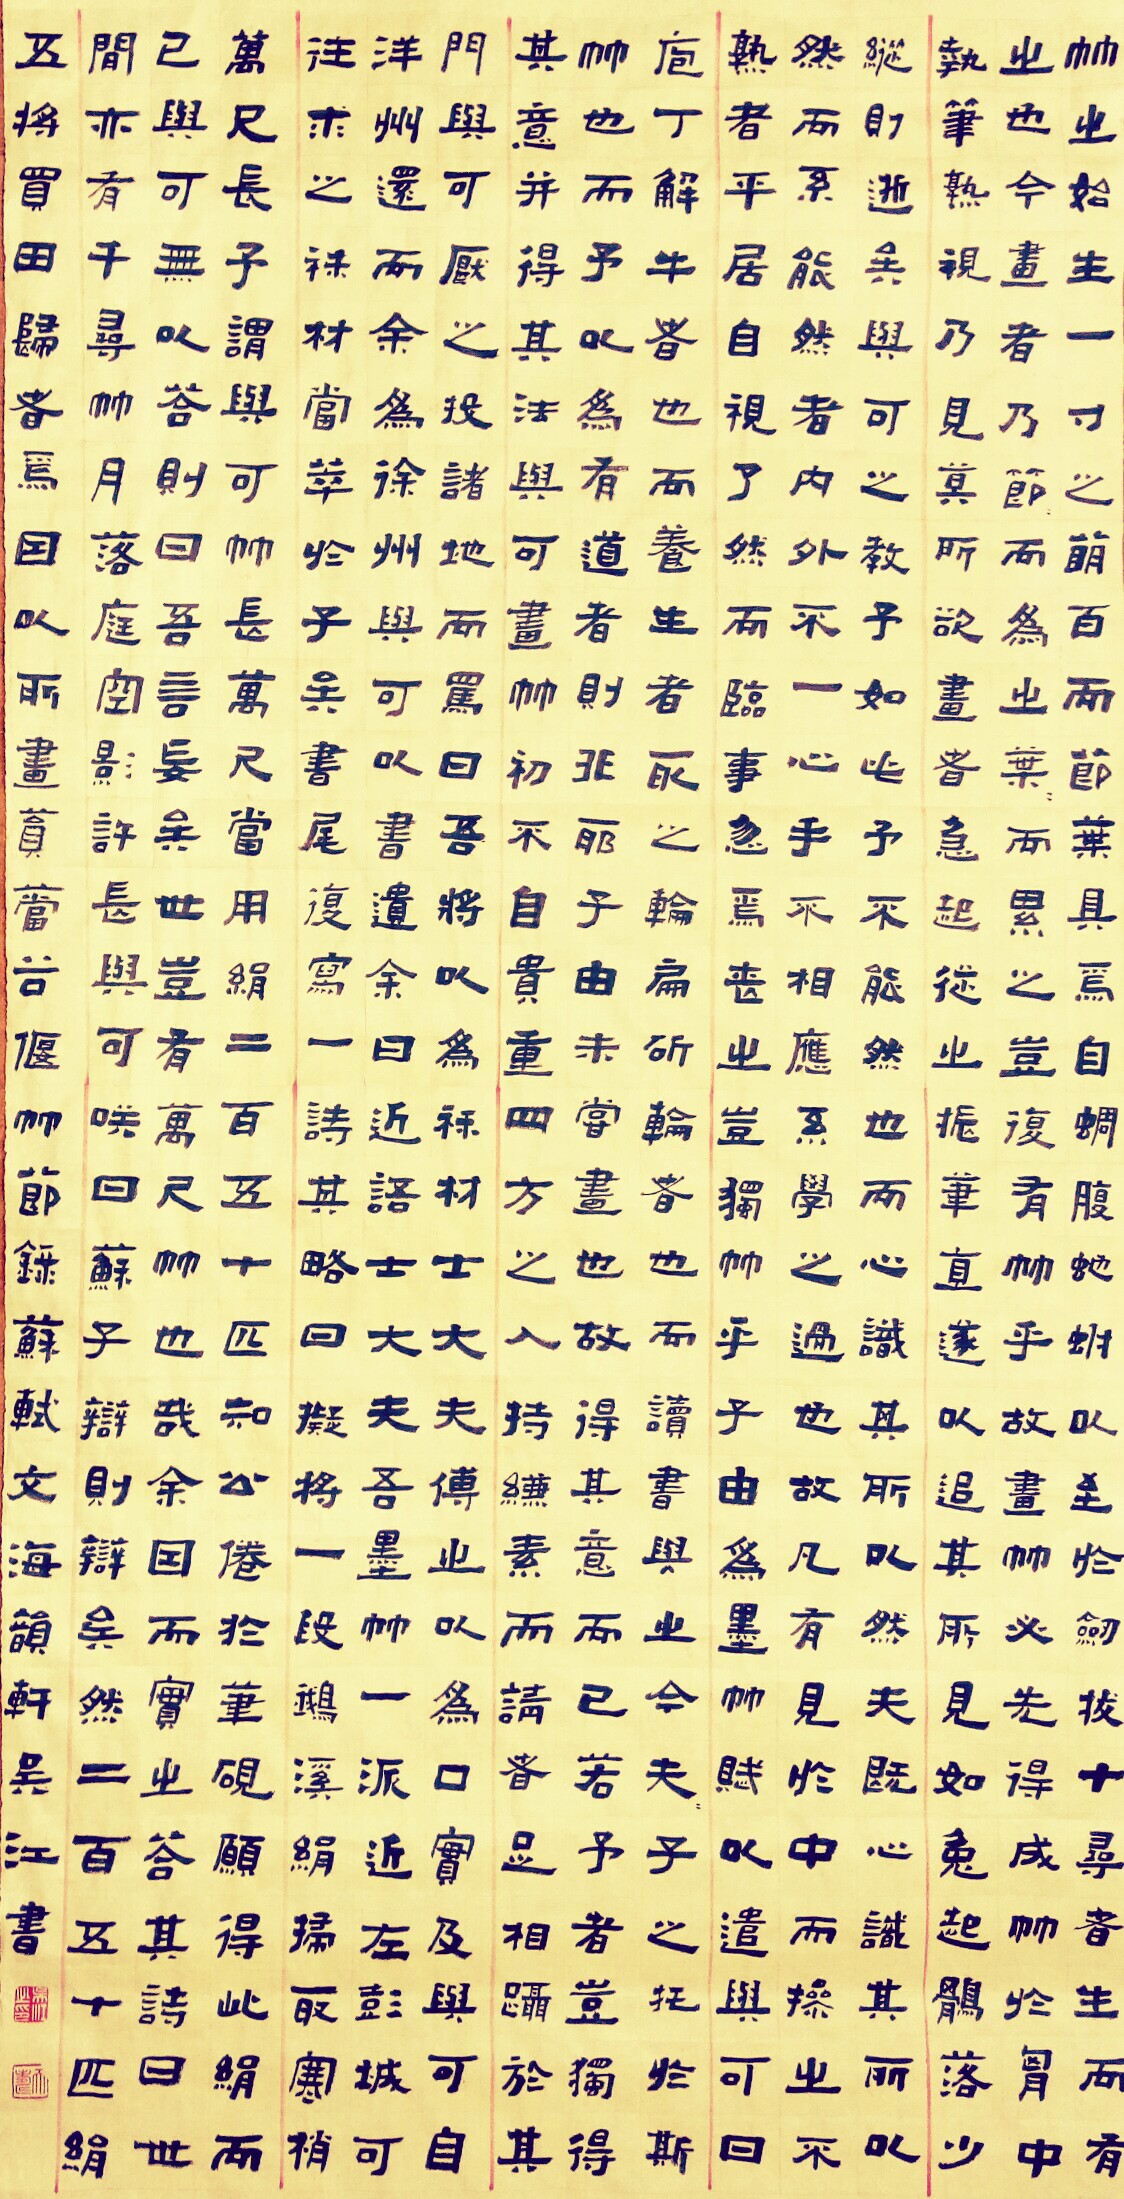 竹之始生一寸之萌百而節葉具焉自蜩腹蛇蚹以至於劒拔十尋者生而有
之也今畫者乃節節而為之葉葉而累之豈復有竹乎故畫竹必先得成竹於胷中
執筆熟視乃見其所欲畫者急起從之振筆直遂以追其所見如兔起鶻落少
縱則逝矣與可之教予如此予不能然也而心識其所以然夫既心識其所以
然而不能然者內外不一心手不相應不學之過也故凡有見於中而操之不
熟者平居自視了然而臨事忽焉喪之豈獨竹乎子由為墨竹賦以遺與可曰
庖丁解牛者也而養生者取之輪扁斫輪者也而讀書與之今夫夫子之托於斯
竹也而予以為有道者則非耶子由未嘗畫也故得其意而已若予者豈獨得
其意并得其法與可畫竹初不自貴重四方之人持縑素而請者足相躡於其
門與可厭之投諸地而罵曰吾將以為襪材士大夫傳之以為口實及與可自
洋州還而余為徐州與可以書遺余曰近語士大夫吾墨竹一派近左彭城可
往求之襪材當萃於子矣書尾復寫一詩其略曰擬將一段鵝溪絹掃取寒梢
萬尺長予謂與可竹長萬尺當用絹二百五十匹知公倦於筆硯願得此絹而
已與可無以荅則曰吾言妄矣世豈有萬尺竹也哉余因而實之荅其詩曰世
間亦有千尋竹月落庭空影許長與可咲曰蘇子辯則辯矣然二百五十匹絹
五將買田歸者焉因以所畫篔簹谷偃竹節錄蘇軾文海韻軒吳江書